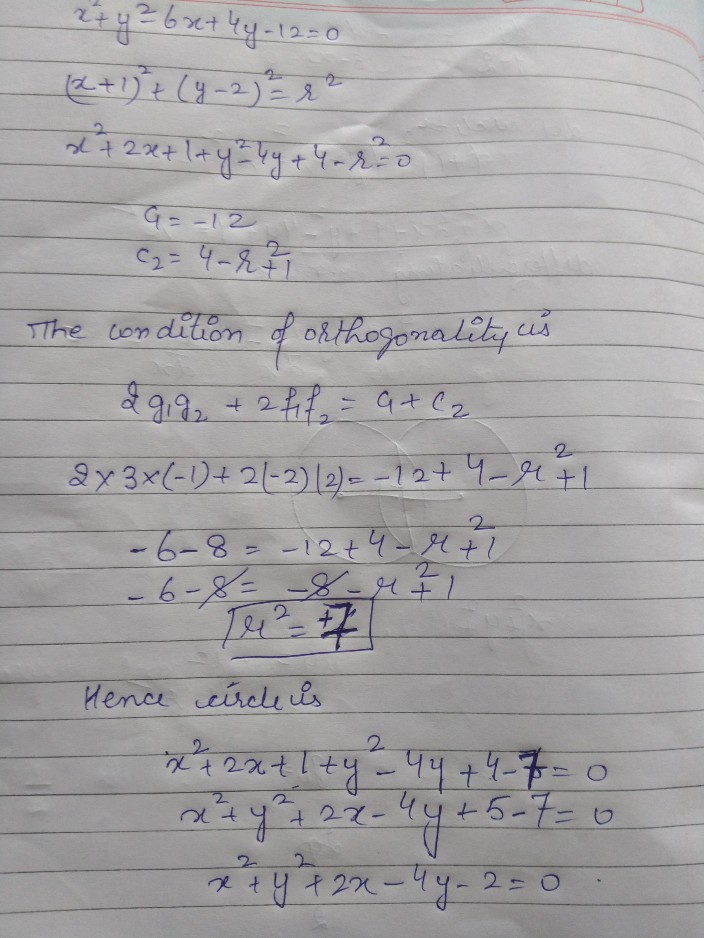 x²+y²-6x+4y-12=0
(x+1)²+(y-2)²=r²
x²+2x+1+y²-4y+4-r²=0
c₁=-12
c₂=4-r²+1
The condition of orthogonality is
2g₁g₂+2f₁f₂=c₁+c₂
2×3×(-1)+2(-2)(2)=-12+4-r²+1
-6-8=-12+4-r²+1
-6-8=-8-r²+1
r²=+7
Hence circle is
x²+2x+1+y²-4y+4-7=0
x²+y²+2x-4y+5-7=0
x²+y²+2x-4y-2=0.